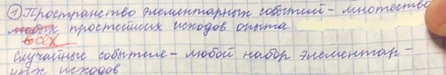 ① Пространство элементарных событий - множество
любых простейших исходов опыта.
всех
Случайные событие - любой набор элементар-
ных исходов